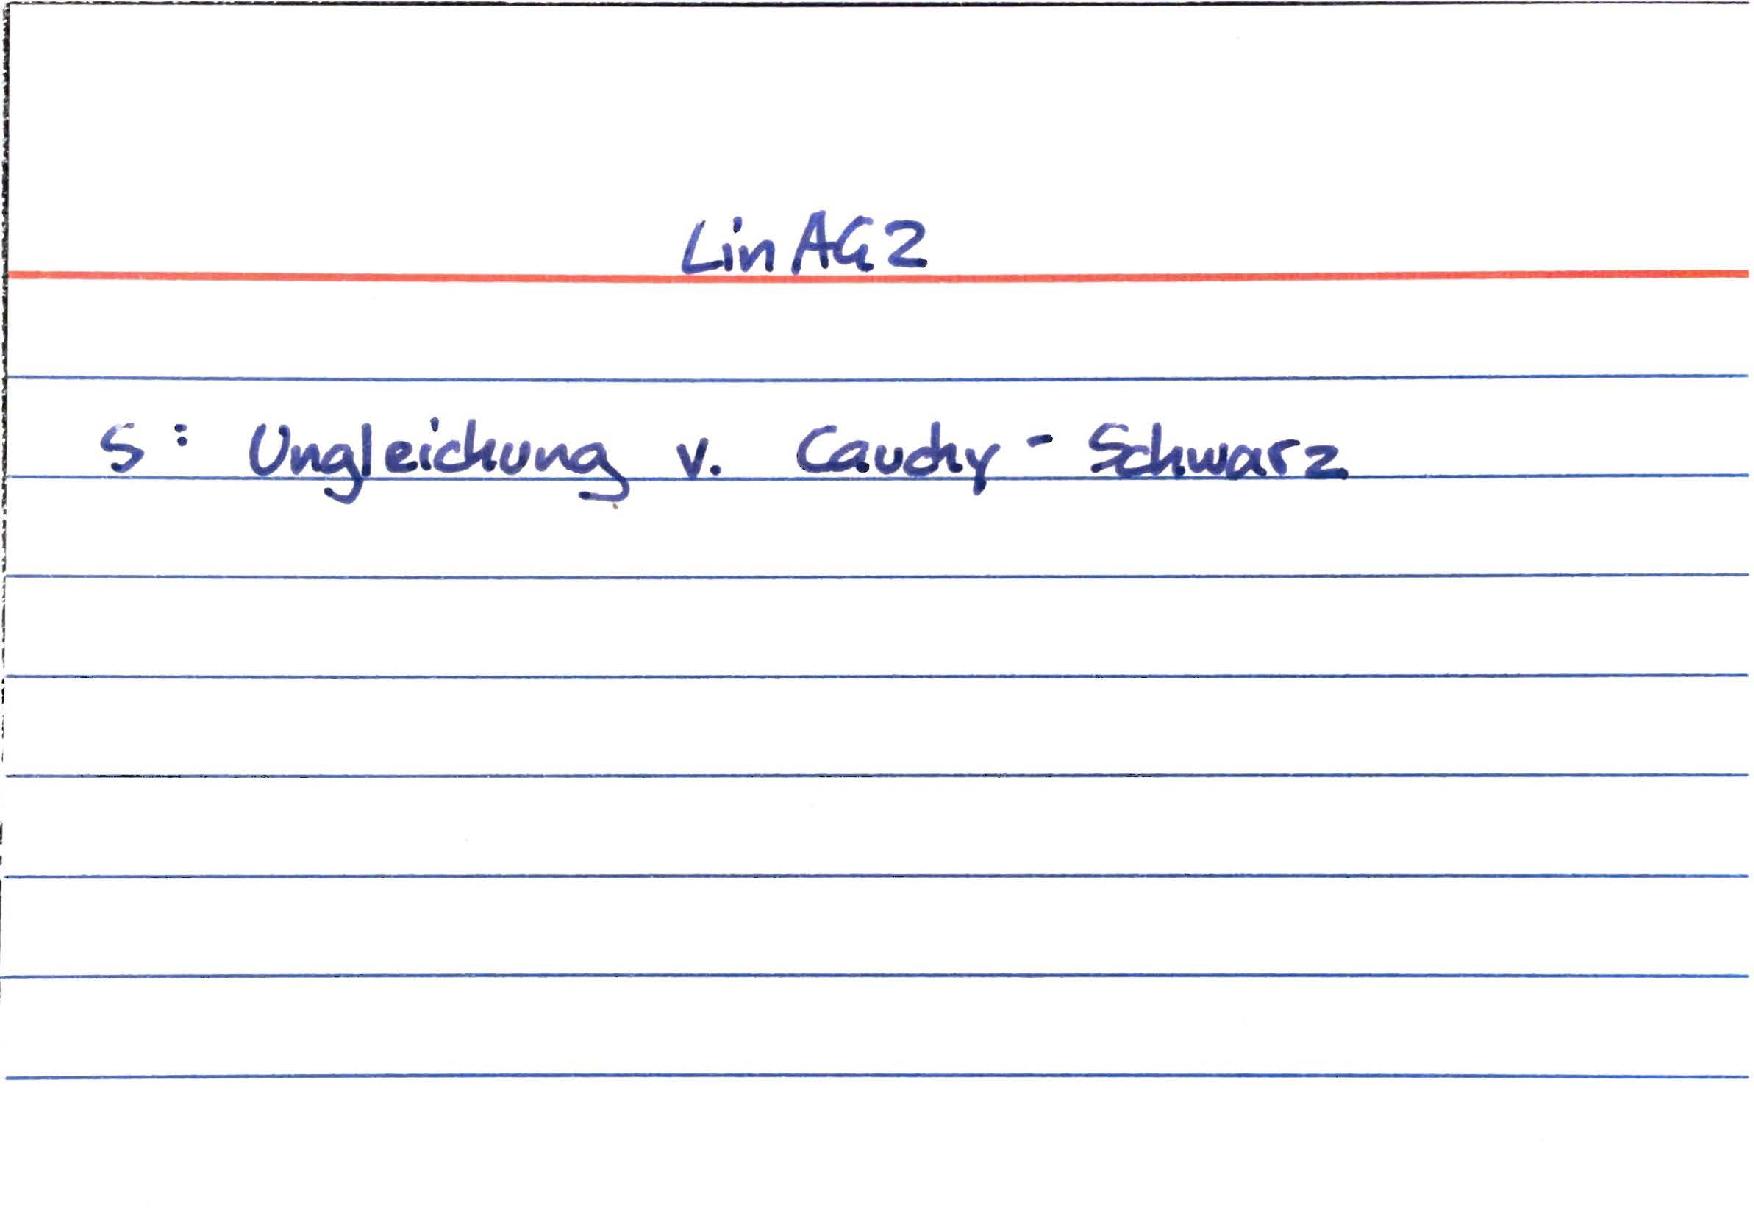 LinAG2
S: Ungleichung v. Cauchy-Schwarz